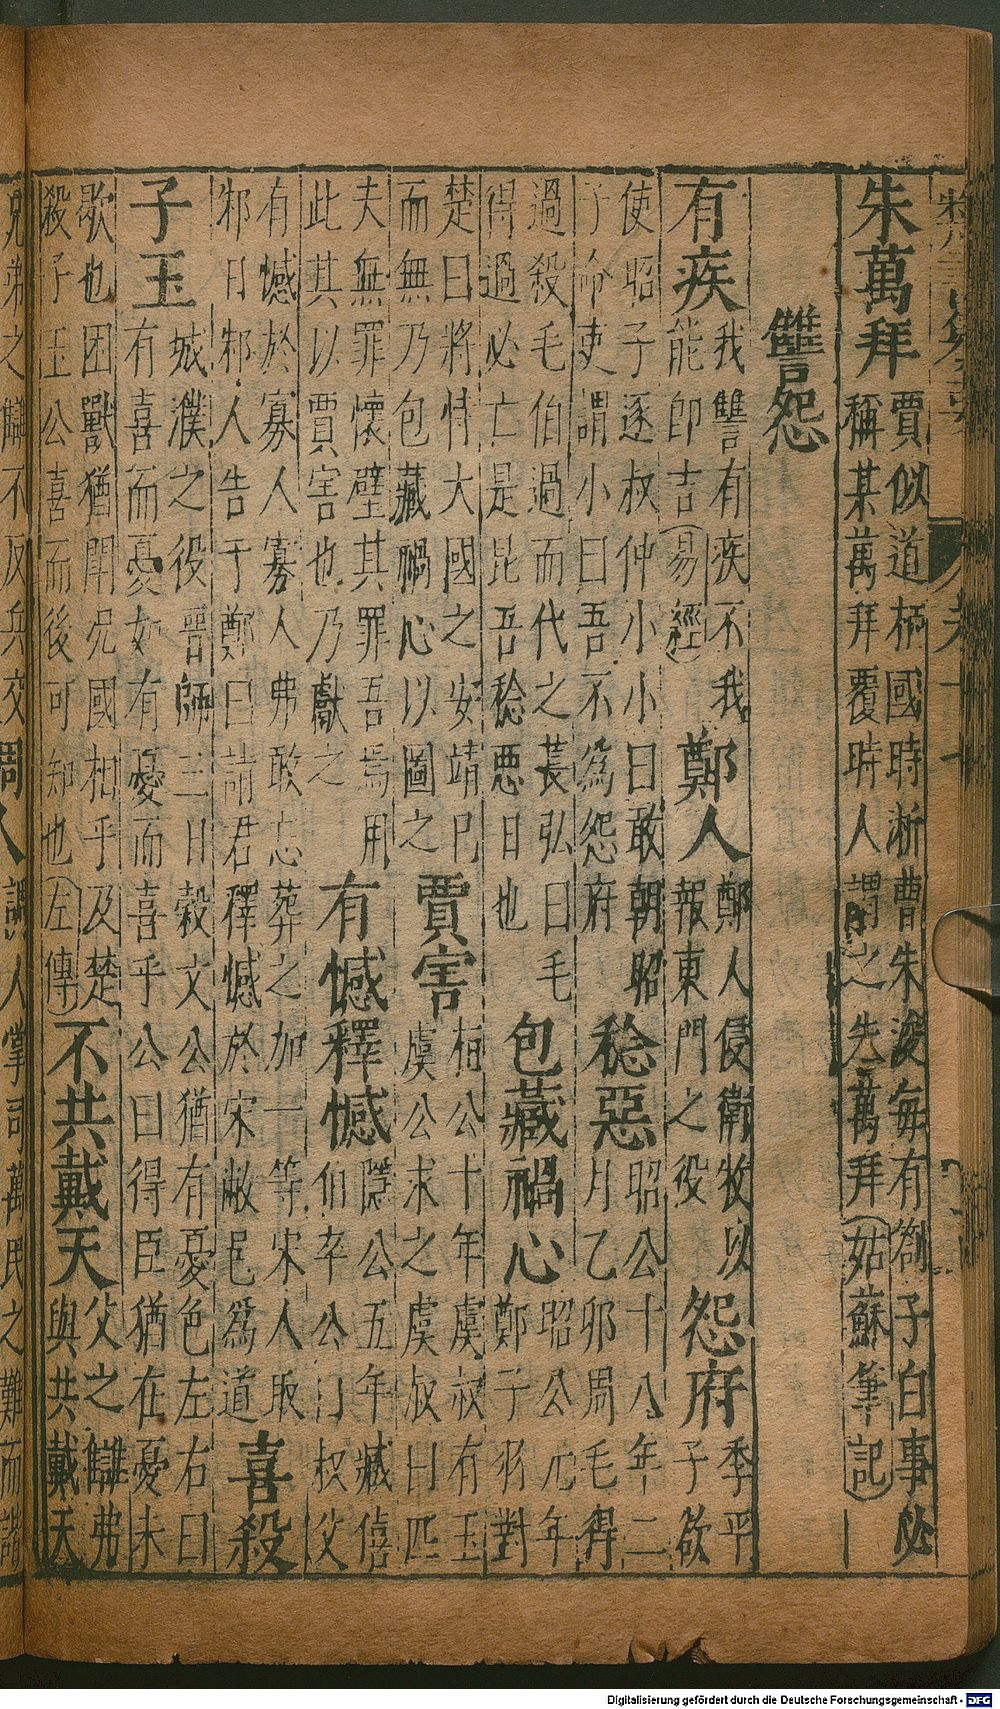 朱萬拜
賈似道柄國時浙曹朱浚每有劄子白事必
稱某萬拜覆時人謂之先萬拜(姑蘇筆記)
讐怨
有疾
我讐有疾不我
能即吉(易經)
鄭人
鄭人侵衛牧以
報東門之役
怨府
季平
子欲
使昭子逐叔仲小小曰敢朝昭
子命吏謂小曰吾不為怨府
稔惡
昭公十八年二
月乙卯周毛得
過殺毛伯過而代之萇弘曰毛
得過必亡是昆吾稔悪日也
包藏禍心
昭公元年
鄭子羽對
楚曰將恃大國之安靖已
而無乃包藏禍心以圖之
賈害
桓公十年虞叔有玉
虞公求之虞叔曰匹
夫無罪懷璧其罪吾焉用
此其以賈害也乃獻之
有憾釋憾
隱公五年臧僖
伯卒公曰叔父
有憾於寡人寡人弗敢忘葬之加一等宋人取
邾田邾人告于鄭曰請君釋憾於宋敝邑為道
喜殺
子玉
城濮之役晉師三日穀文公猶有憂色左右曰
有喜而憂如有憂而喜乎公曰得臣猶在憂未
歇也困獸猶鬬况國相乎及楚
殺子玉公喜而後可知也(左傳)
不共戴天
父之讎弗
與共戴天
兄弟之讎不反兵交
調人
調人掌司萬民之難而諧
Digitalisierung gefördert durch die Deutsche Forschungsgemeinschaft - DFG